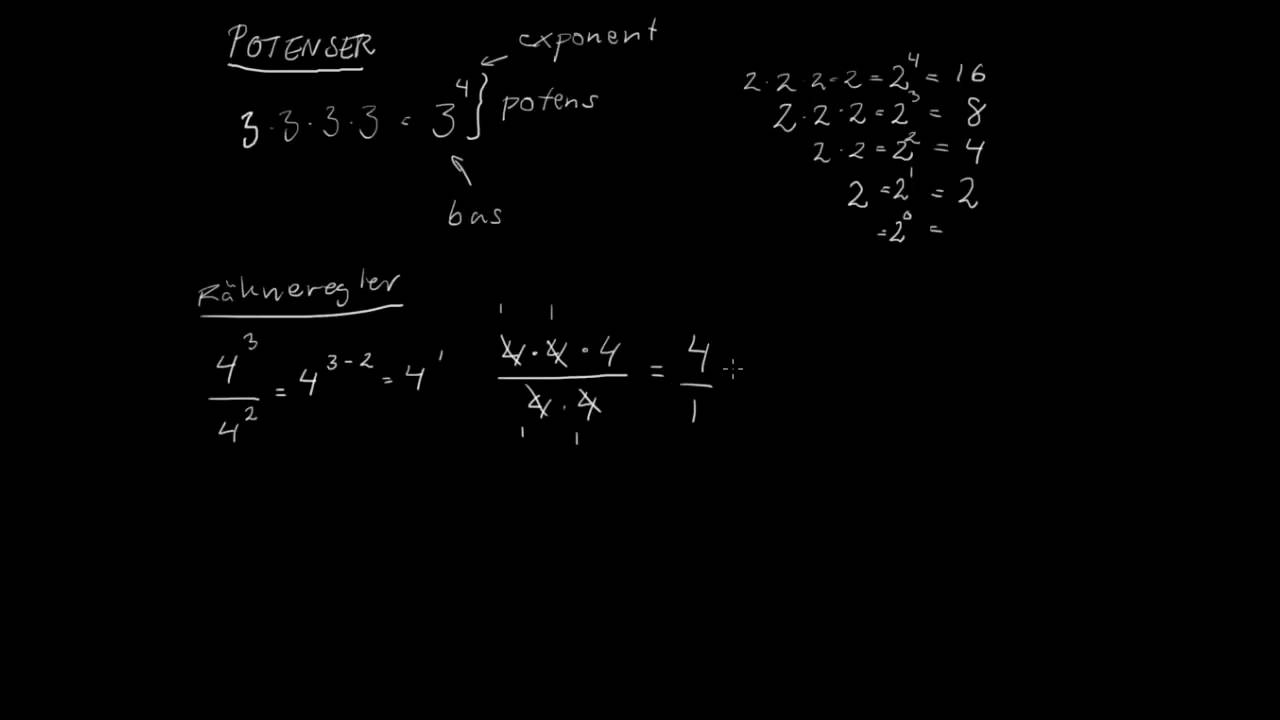 POTENSER
exponent
3·3·3·3 = 3⁴ } potens
bas
2·2·2·2 = 2⁴ = 16
2·2·2 = 2³ = 8
2·2 = 2² = 4
2 = 2¹ = 2
= 2⁰ =
Räkneregler
4³/4² = 4³⁻² = 4¹
1 1
4·4·4 / 4·4 = 4/1
1 1